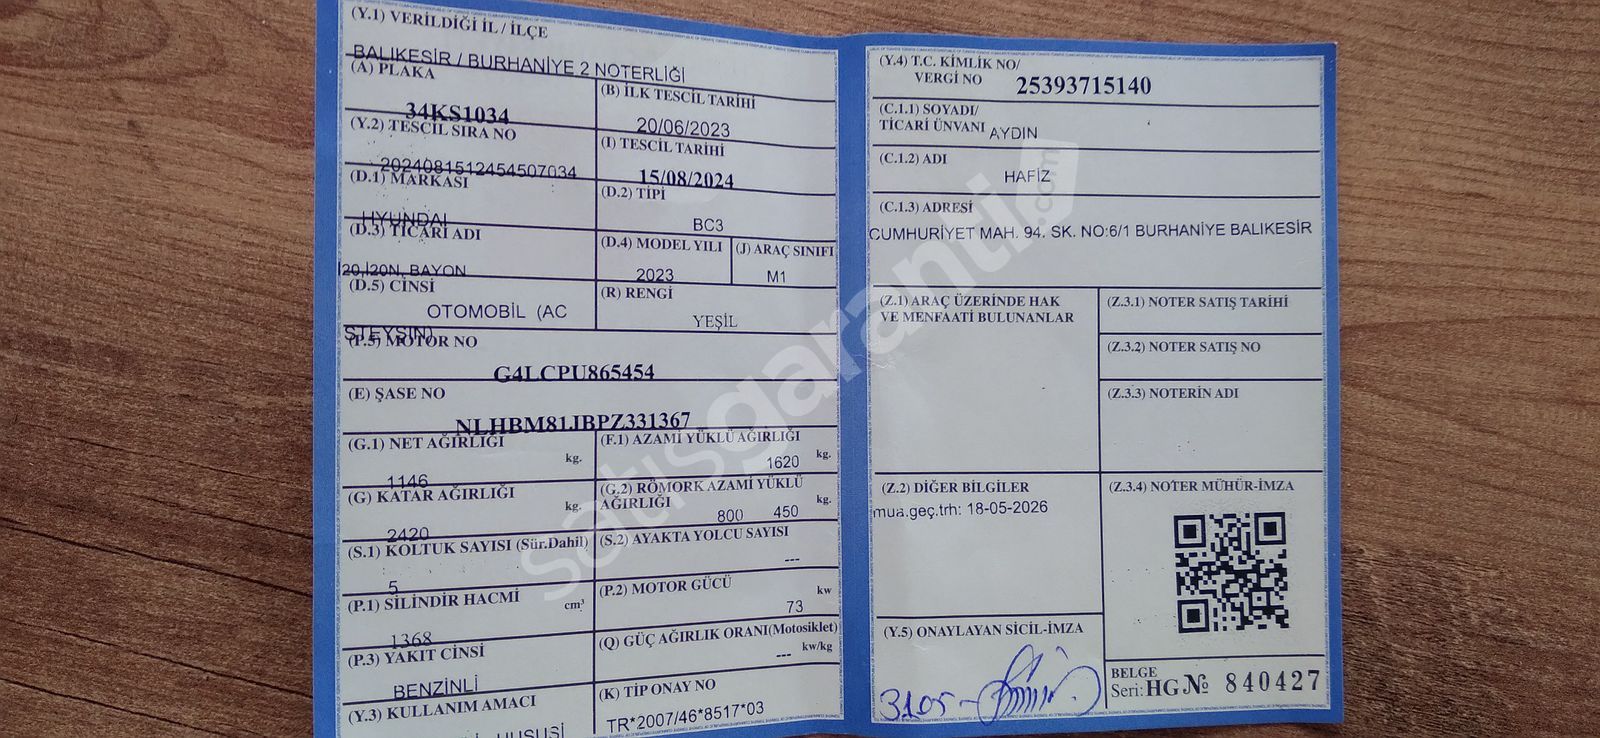 (Y.1) VERİLDİĞİ İL / İLÇE
BALIKESİR / BURHANİYE 2 NOTERLİĞİ
(A) PLAKA
34KS1034
(B) İLK TESCİL TARİHİ
20/06/2023
(Y.2) TESCİL SIRA NO
2024081512454507034
(I) TESCİL TARİHİ
15/08/2024
(D.1) MARKASI
HYUNDAI
(D.2) TİPİ
BC3
(D.3) TİCARİ ADI
İ20,İ20N, BAYON
(D.4) MODEL YILI
2023
(J) ARAÇ SINIFI
M1
(D.5) CİNSİ
OTOMOBİL (AC
STEYŞIN)
(R) RENGİ
YEŞİL
(P.5) MOTOR NO
G4LCPU865454
(E) ŞASE NO
NLHBM81JBPZ331367
(G.1) NET AĞIRLIĞI
kg.
1146
(F.1) AZAMİ YÜKLÜ AĞIRLIĞI
1620 kg.
(G) KATAR AĞIRLIĞI
kg.
2420
(G.2) RÖMORK AZAMİ YÜKLÜ
AĞIRLIĞI kg.
800 450
(S.1) KOLTUK SAYISI (Sür.Dahil)
5
(S.2) AYAKTA YOLCU SAYISI
---
(P.1) SİLİNDİR HACMİ
cm³
1368
(P.2) MOTOR GÜCÜ
kw
73
(P.3) YAKIT CİNSİ
BENZİNLİ
(Q) GÜÇ AĞIRLIK ORANI(Motosiklet)
--- kw/kg
(Y.3) KULLANIM AMACI
HUSUSİ
(K) TİP ONAY NO
TR*2007/46*8517*03
(Y.4) T.C. KİMLİK NO/
VERGİ NO
25393715140
(C.1.1) SOYADI/
TİCARİ ÜNVANI AYDIN
(C.1.2) ADI
HAFİZ
(C.1.3) ADRESİ
CUMHURİYET MAH. 94. SK. NO:6/1 BURHANİYE BALIKESİR
(Z.1) ARAÇ ÜZERİNDE HAK
VE MENFAATİ BULUNANLAR
(Z.3.1) NOTER SATIŞ TARİHİ
(Z.3.2) NOTER SATIŞ NO
(Z.3.3) NOTERİN ADI
(Z.2) DİĞER BİLGİLER
mua.geç.trh: 18-05-2026
(Z.3.4) NOTER MÜHÜR-İMZA
(Y.5) ONAYLAYAN SİCİL-İMZA
BELGE
Seri: HG № 840427
satısgaranti.com